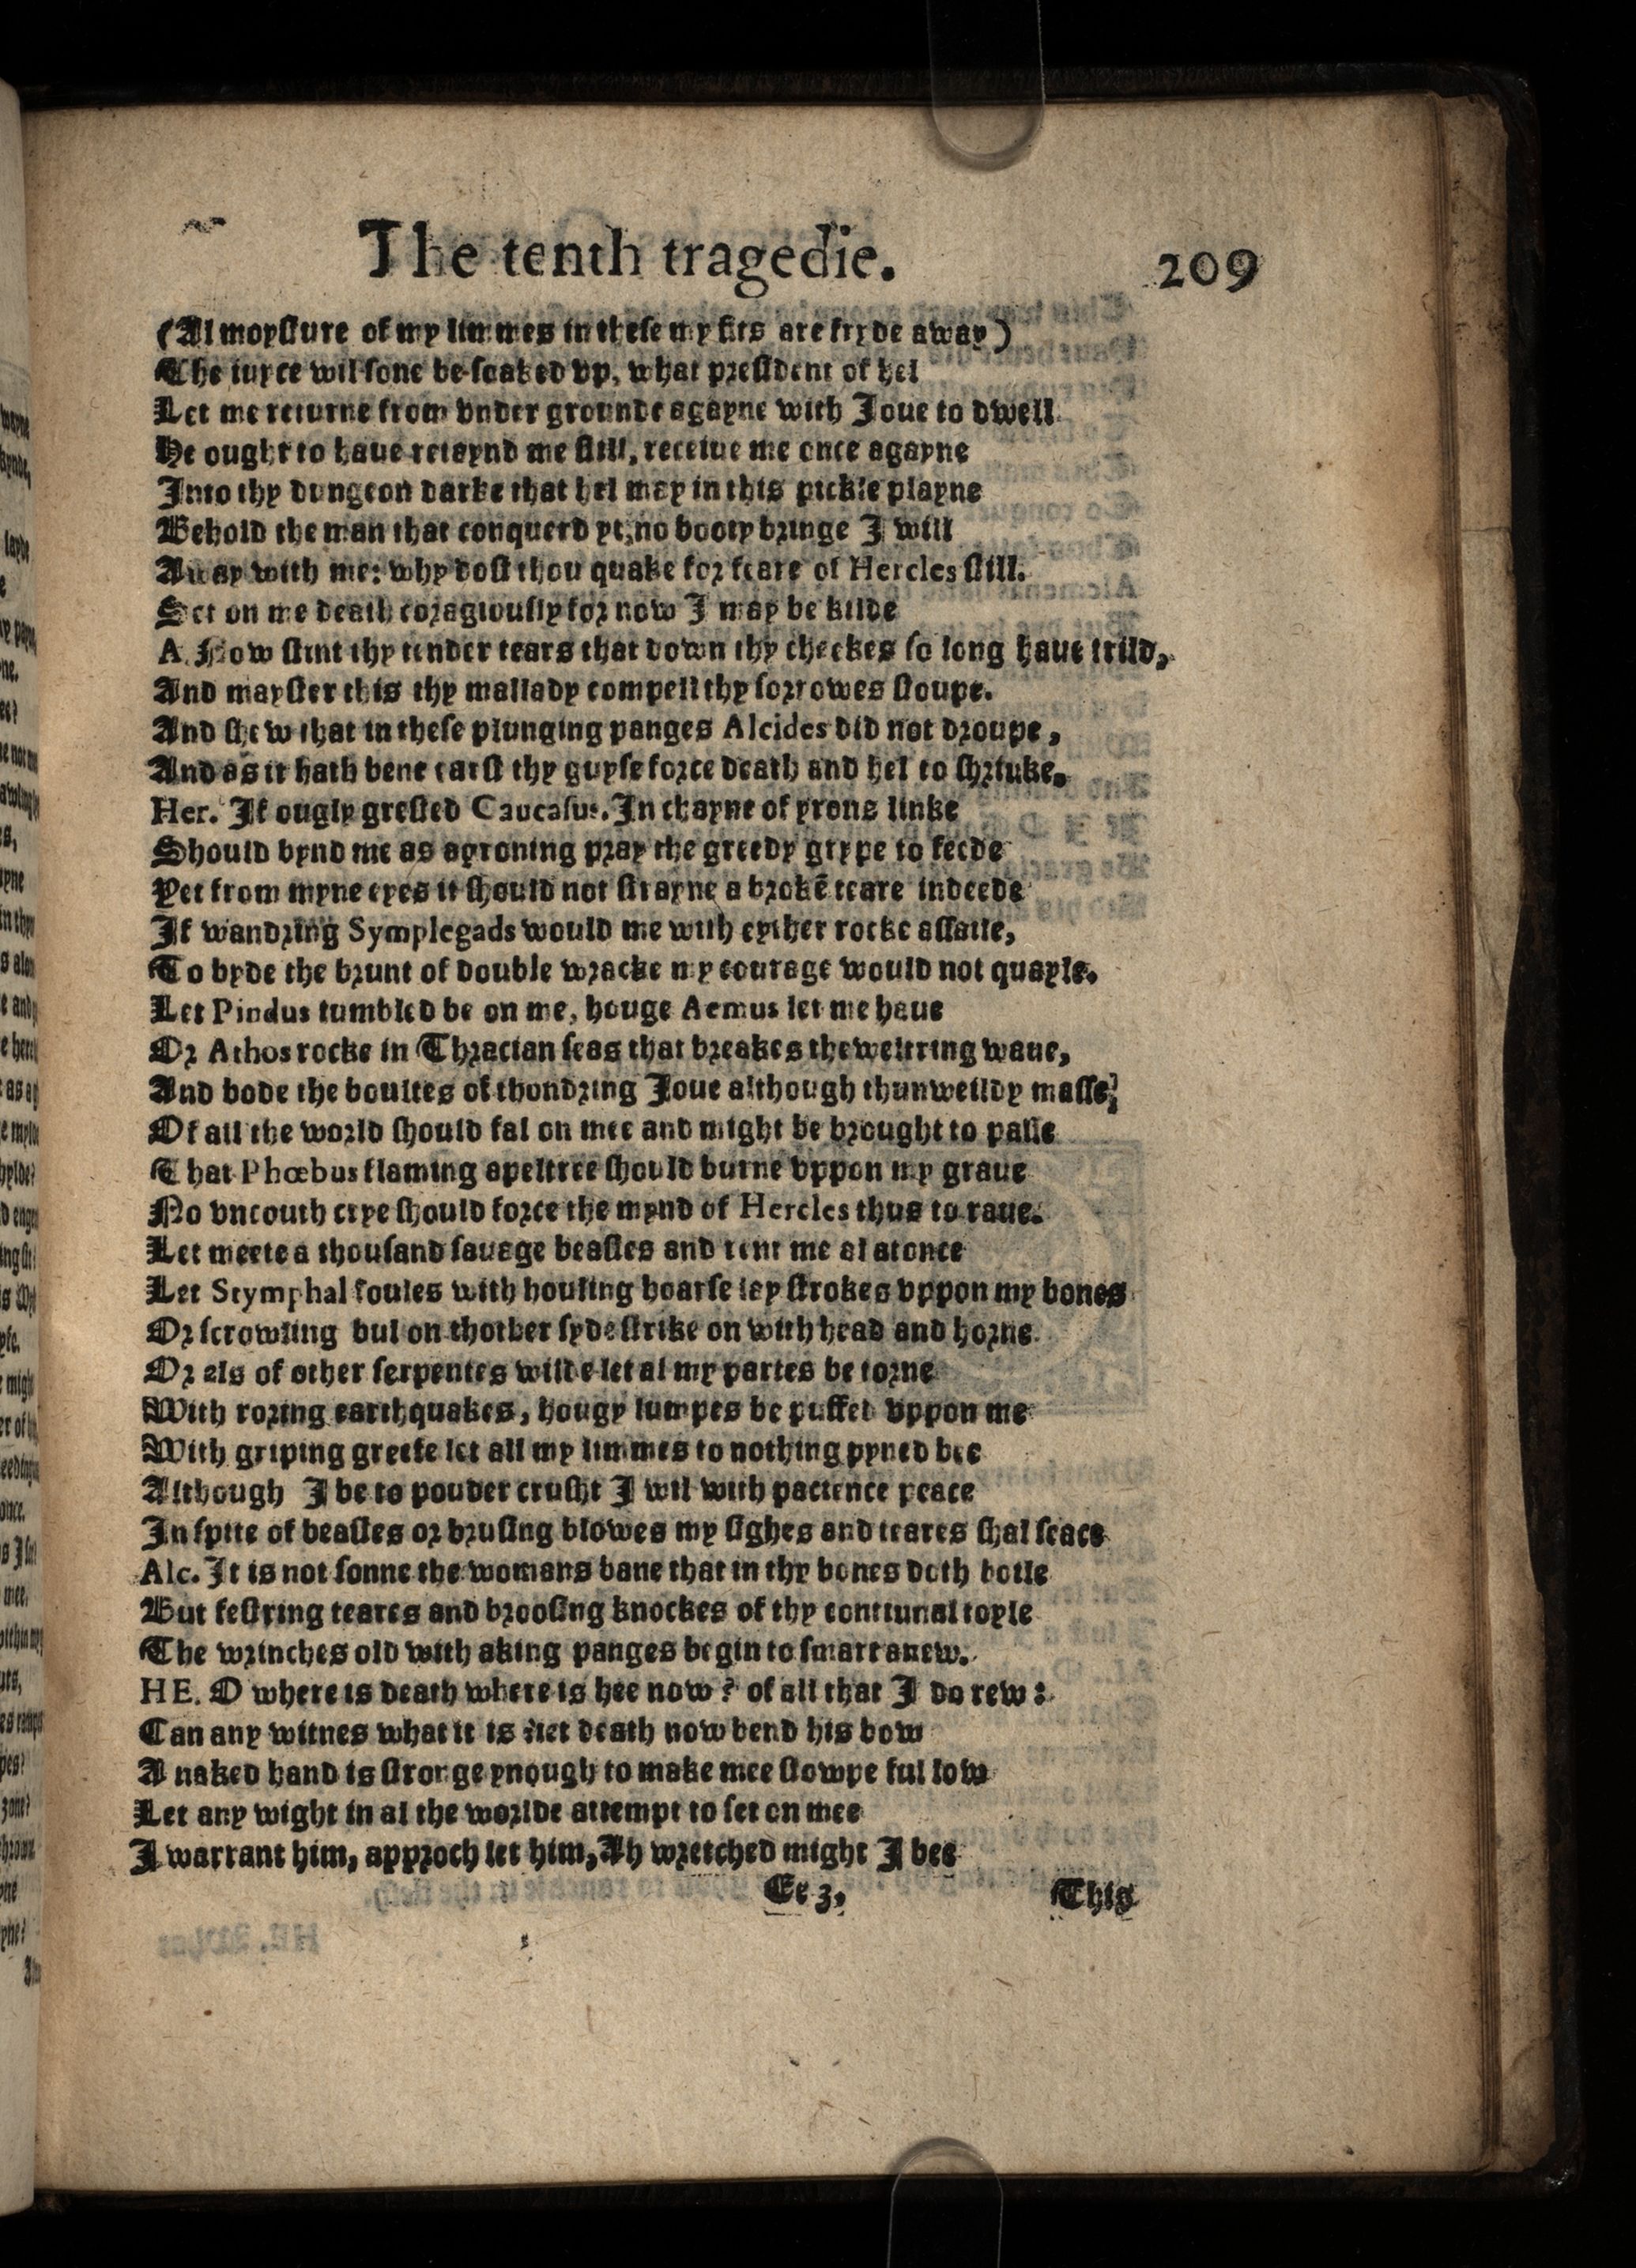 The tenth tragedie. 209
(Al moysture of my limmes in these my fits are fryde away)
The iuyce wil sone be soaked vp, what president of hel
Let me returne from vnder grounde agayne with Ioue to dwell
He ought to haue retaynd me still, receiue me once agayne
Into thy dungeon darke that hel may in this pickle playne
Behold the man that conquerd yt, no booty bringe I will
Away with me: why dost thou quake for feare of Hercles still.
Set on me death coragiously for now I may be kilde
A. Now stint thy tender tears that down thy cheekes so long haue trild,
And mayster this thy mallady compell thy sorrowes stoupe.
And shew that in these plunging panges Alcides did not droupe,
And as it hath bene earst thy guyse force death and hel to shrinke.
Her. If ougly grested Caucasus. In chayne of yrons linke
Should bynd me as ayroning pray the greedy grype to feede
Yet from myne eyes it should not strayne a brokē teare indeede
If wandring Symplegads would me with eyther rocke assaile,
To byde the brunt of double wracke my courage would not quayle.
Let Pindus tumbled be on me, houge Aemus let me haue
Or Athos rocke in Thracian seas that breakes the weltring waue,
And bode the boultes of thondring Ioue although thunweildy masse,
Of all the world should fal on mee and might be brought to passe
That Phœbus flaming apeltree should burne vppon my graue
No vncouth crye should force the mynd of Hercles thus to raue.
Let meete a thousand sauage beastes and rent me al atonce
Let Stymphal foules with houling hoarse lay strokes vppon my bones
Or scrowling bul on thother syde strike on with head and horne
Or els of other serpentes wilde let al my partes be torne
With roring earthquakes, hougy lumpes be puffet vppon me
With griping greefe let all my limmes to nothing pyned bee
Although I be to pouder crusht I wil with pacience peace
In spite of beastes or brusing blowes my sighes and teares shal seace
Alc. It is not sonne the womans bane that in thy bones doth boile
But festring teares and broosing knockes of thy continual toyle
The wrinches old with aking panges begin to smart anew.
HE. O where is death where is hee now? of all that I do rew:
Can any witnes what it is let death now bend his bow
A naked hand is stronge ynough to make mee stowpe ful low
Let any wight in al the worlde attempt to set on mee
I warrant him, approch let him, Ah wretched might I bee
Ee 3. This